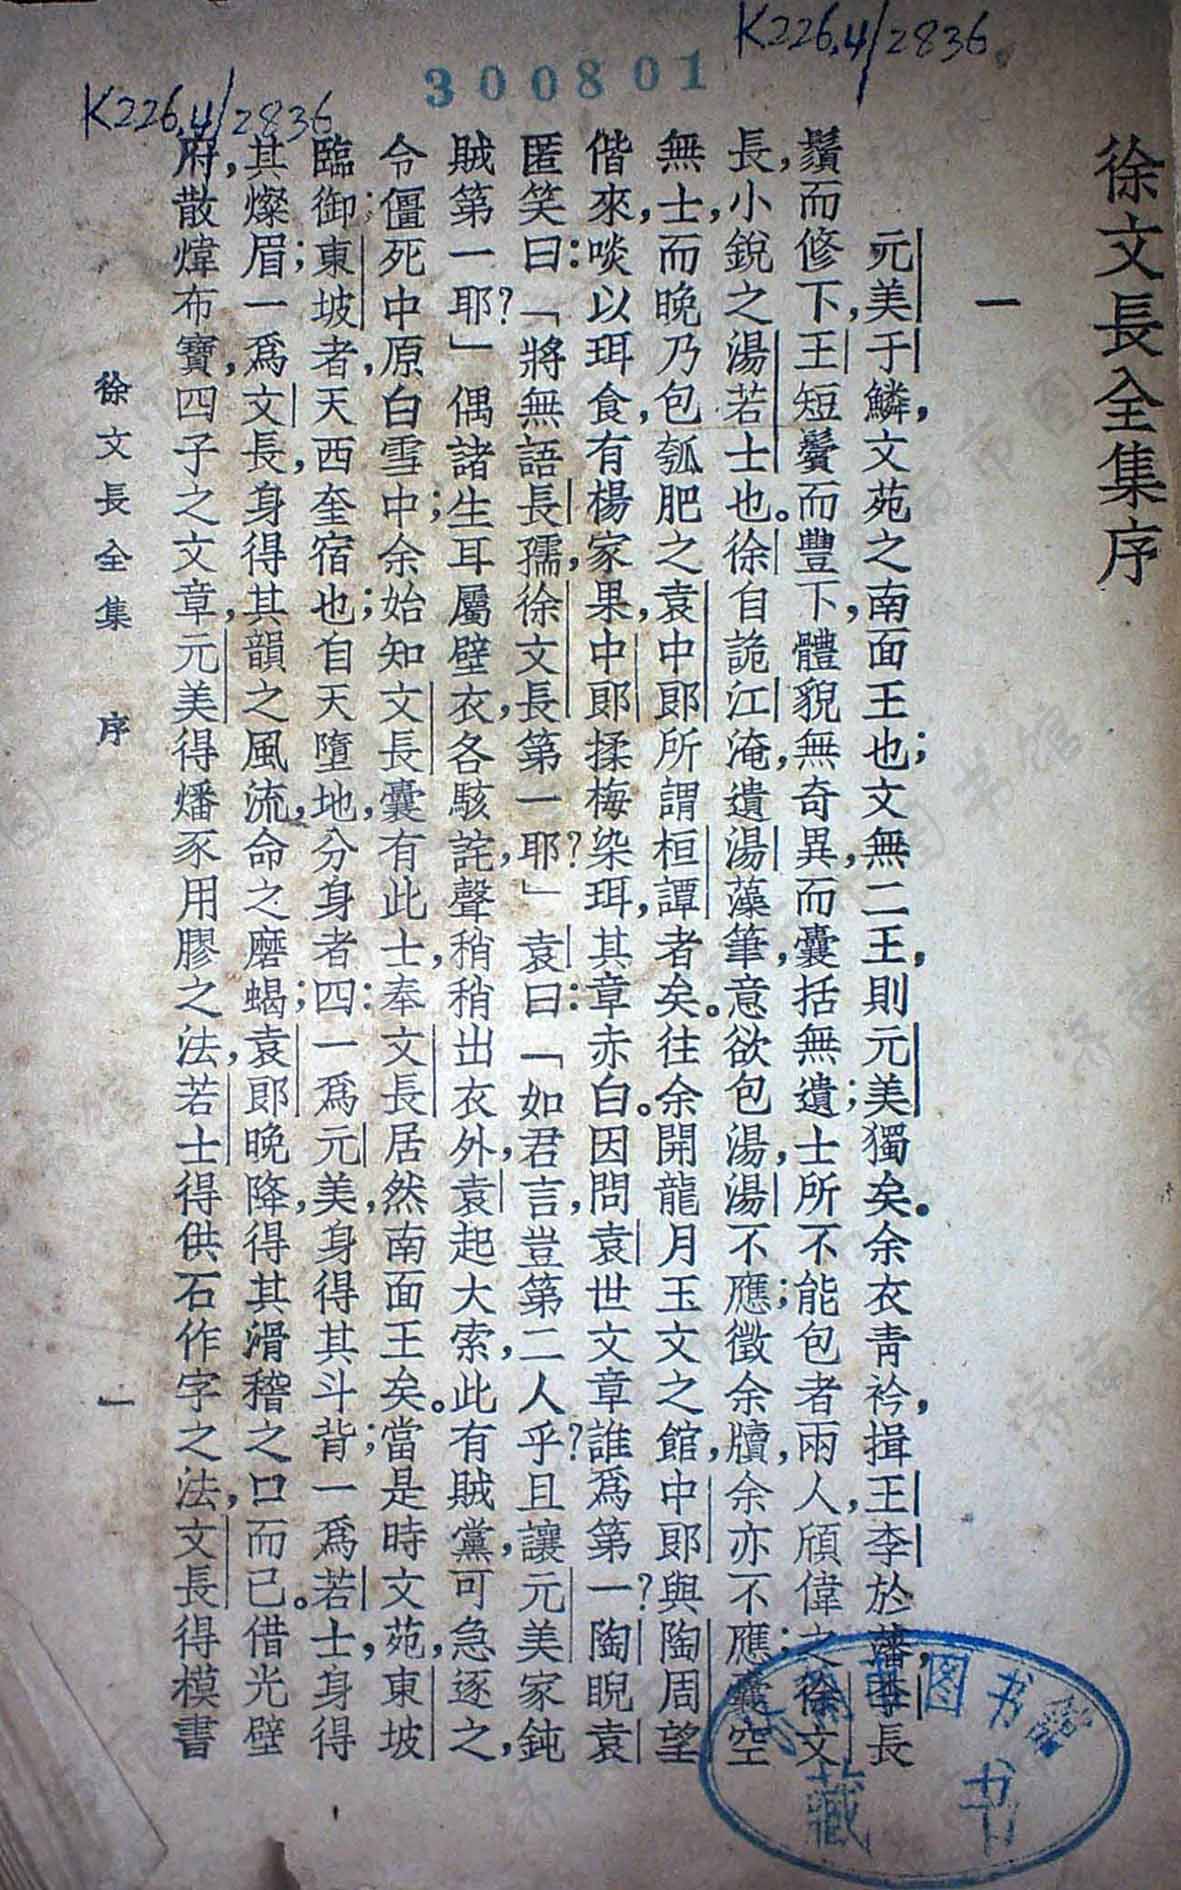 K226.4/2836
300801
K226.4/2836
徐文長全集序
一
元美于鱗,文苑之南面王也;文無二王,則元美獨矣。余衣青衿,揖王李於藩,李長
鬚而修下,王短鬢而豐下,體貌無奇異,而囊括無遺;士所不能包者兩人,頎偉之徐文
長,小銳之湯若士也。徐自詭江淹,遺湯藻筆,意欲包湯,湯不應;徵余牘,余亦不應;囊空
無士,而晚乃包瓠肥之袁中郎,所謂桓譚者矣。往余開龍月玉文之館,中郎與陶周望
偕來,啖以珥食,有楊家果,中郎揉梅染珥,其章赤白。因問袁世文章誰爲第一?陶睨袁
匿笑曰:「將無語長孺,徐文長第一耶?」袁曰:「如君言,豈第二人乎?且讓元美家鈍
賊第一耶?」偶諸生耳屬壁衣,各駭詫,聲稍稍出衣外,袁起大索,此有賊黨,可急逐之,
令僵死中原白雪中;余始知文長囊有此士,奉文長居然南面王矣。當是時文苑,東坡
臨御;東坡者,天西奎宿也;自天墮地,分身者四:一爲元美,身得其斗背;一爲若士,身得
其燦眉;一爲文長,身得其韻之風流,命之磨蝎;袁郎晚降,得其滑稽之口而已。借光壁
府,散煒布寶,四子之文章,元美得燔豕用膠之法,若士得供石作字之法,文長得模書
徐文長全集 序
一
图书馆
藏书